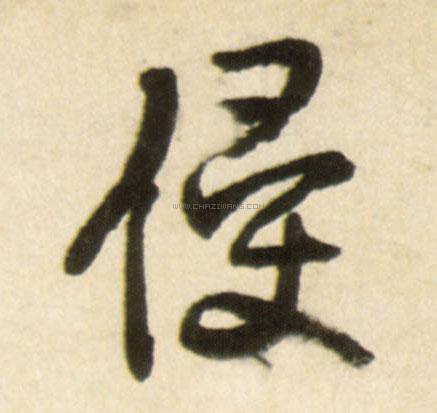 侵
WWW.CHAZIWANG.COM